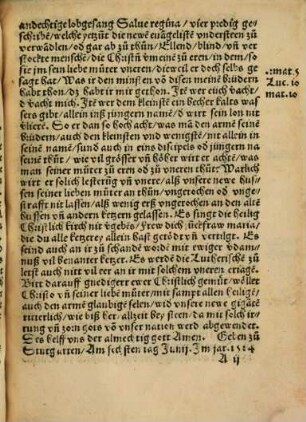 andechtige lobgesang Salue regina / vier predig ge-
schribẽ / welche yetzũt die newẽ euãgelistẽ vndersteen zů
verwüdlen / od gar ab zů thůn / Ellend / blind / vñ ver
stockte mensche / die Christũ vmeinẽ zů eren / in dem / so
sie jm sein liebe můter vneren / dieweil er doch selbs ge
sagt hat. Was ir den minstẽ võ disen meinẽ brüdern
habt thon / dz habt ir mit gethon. Jtẽ wer euch vacht /
d vacht mich. Jtẽ wer dem kleinstẽ ein becher kalts was
sers gibt / allein inß jüngern namẽ / d wirt sein lon nit
vlierẽ. So er dan so hoch acht / was mã den armẽ seinẽ
brüdern / auch den kleinstẽ vnd wenigstẽ / nit allein in
seinẽ namẽ / sund auch in eins discipels od jüngers na
mẽ thůt / wie vil grösser vñ höher wirt er achtẽ / was
man seiner můter zů eren od zů vneren thůt? Warlich
wirt er solich lesterũg vñ vnere / so
sen seiner lieben můter an thůn / vngerochen od unge-
strafft nit lassen / als wenig erß vngerochen an den altẽ
hussen vñ andern ketzern gelassen. Es singt die heilig
Christlich kirch nit vgebẽs / frew dich / juckfraw maria /
die du alle ketzerey allein hast getödt vñ vertilgt. Es
seind auch an ir zů schandẽ wordẽ mit ewiger vdam /
nuß vil benanter ketzer. Es werdẽ die Lutherischẽ zů
letst auch nitt vil eer an ir mit solchem vneren eriagẽ.
Bitt darauff gnedigert ewer Christlich gemüt / wöllet
Christo vñ seiner liebẽ můter / mit sampt allen heiligẽ /
auch den armẽ glaubigẽ selen / wid vnsere newe gigãtẽ
ritterlich / wie biß her / allzeit bey steen / da mit solch ir-
rung vñ zorn gots vō vnser nation werd abgewendet.
Des helff vns der almechtig gott Amen. Geben zů
Stutgarten / Am sechsten tag Junij. Jm jar. 1524
A ij
mat. 5
Luc. 10
mat. 10